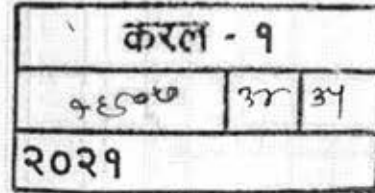 करल - १
१६५०७ ३४ ३५
२०२१